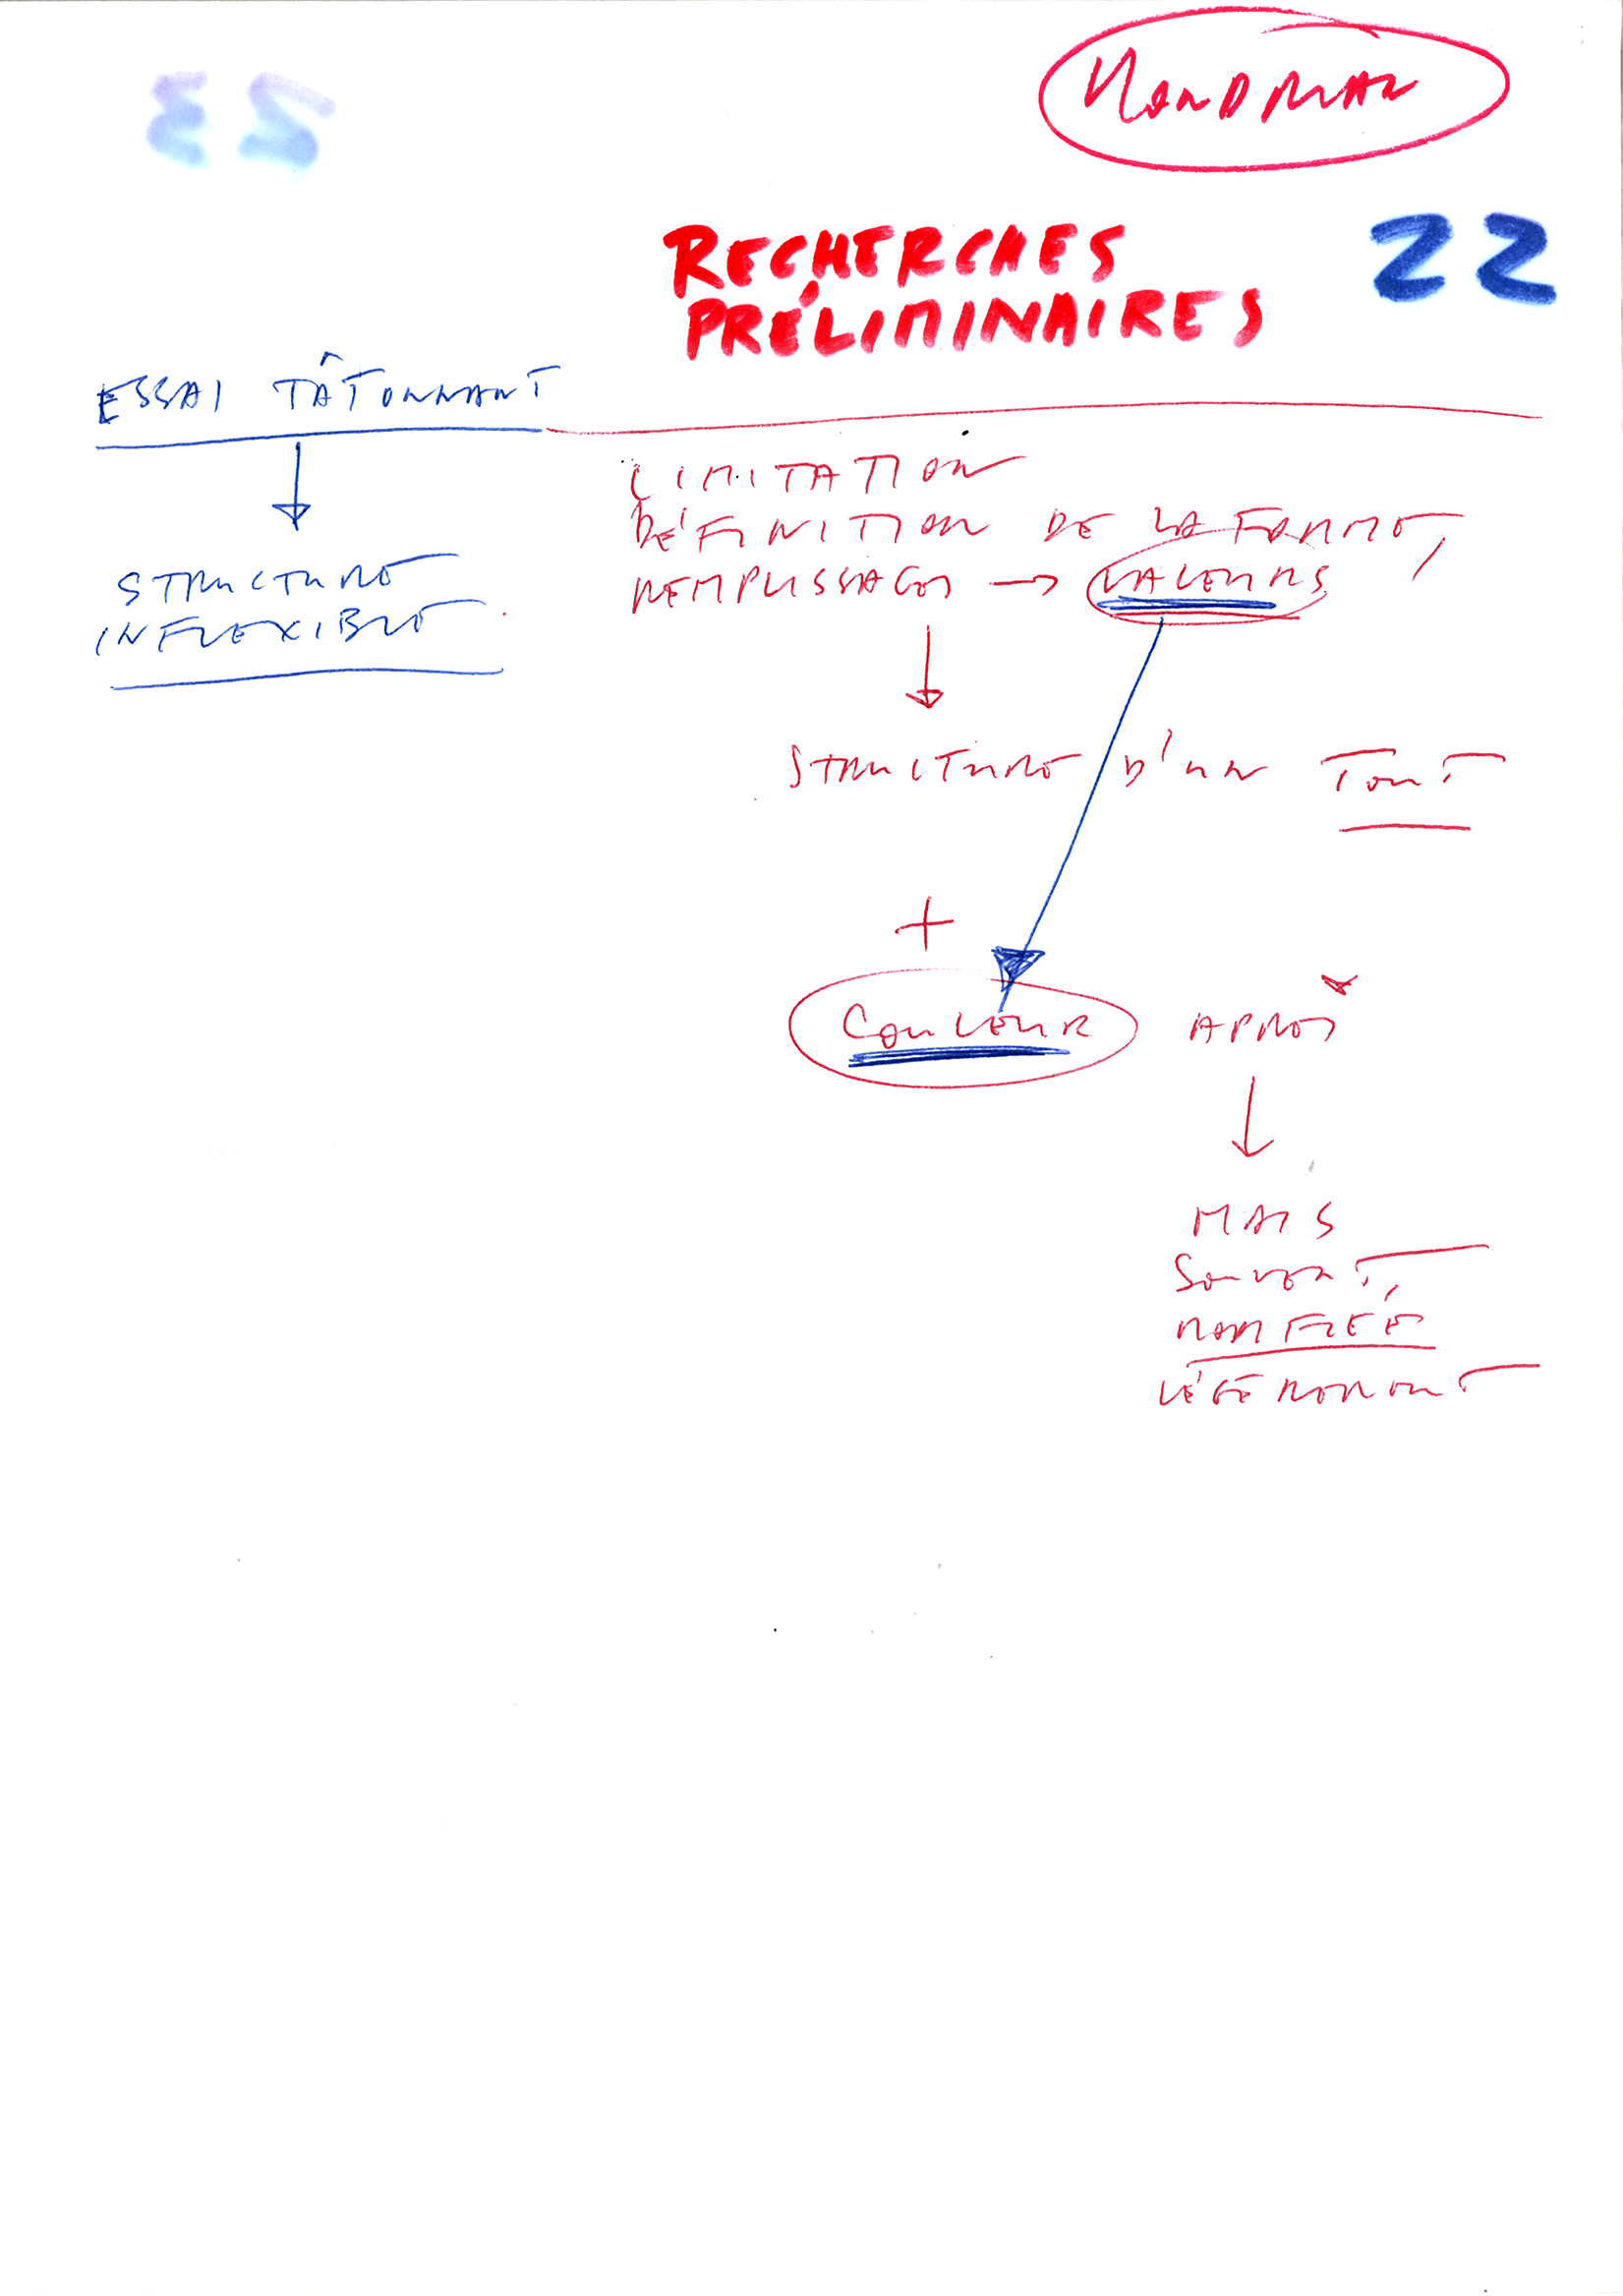 MONDRIAN
22
RECHERCHES
PRÉLIMINAIRES
ESSAI TÂTONNANT
STRUCTURE
INFLEXIBLE
LIMITATION
DÉFINITION DE LA FORME,
REMPLISSAGES → VALEURS
STRUCTURE D'UN TOUT
+
COULEUR APRÈS
MAIS
SOUVENT,
LÉGÈREMENT